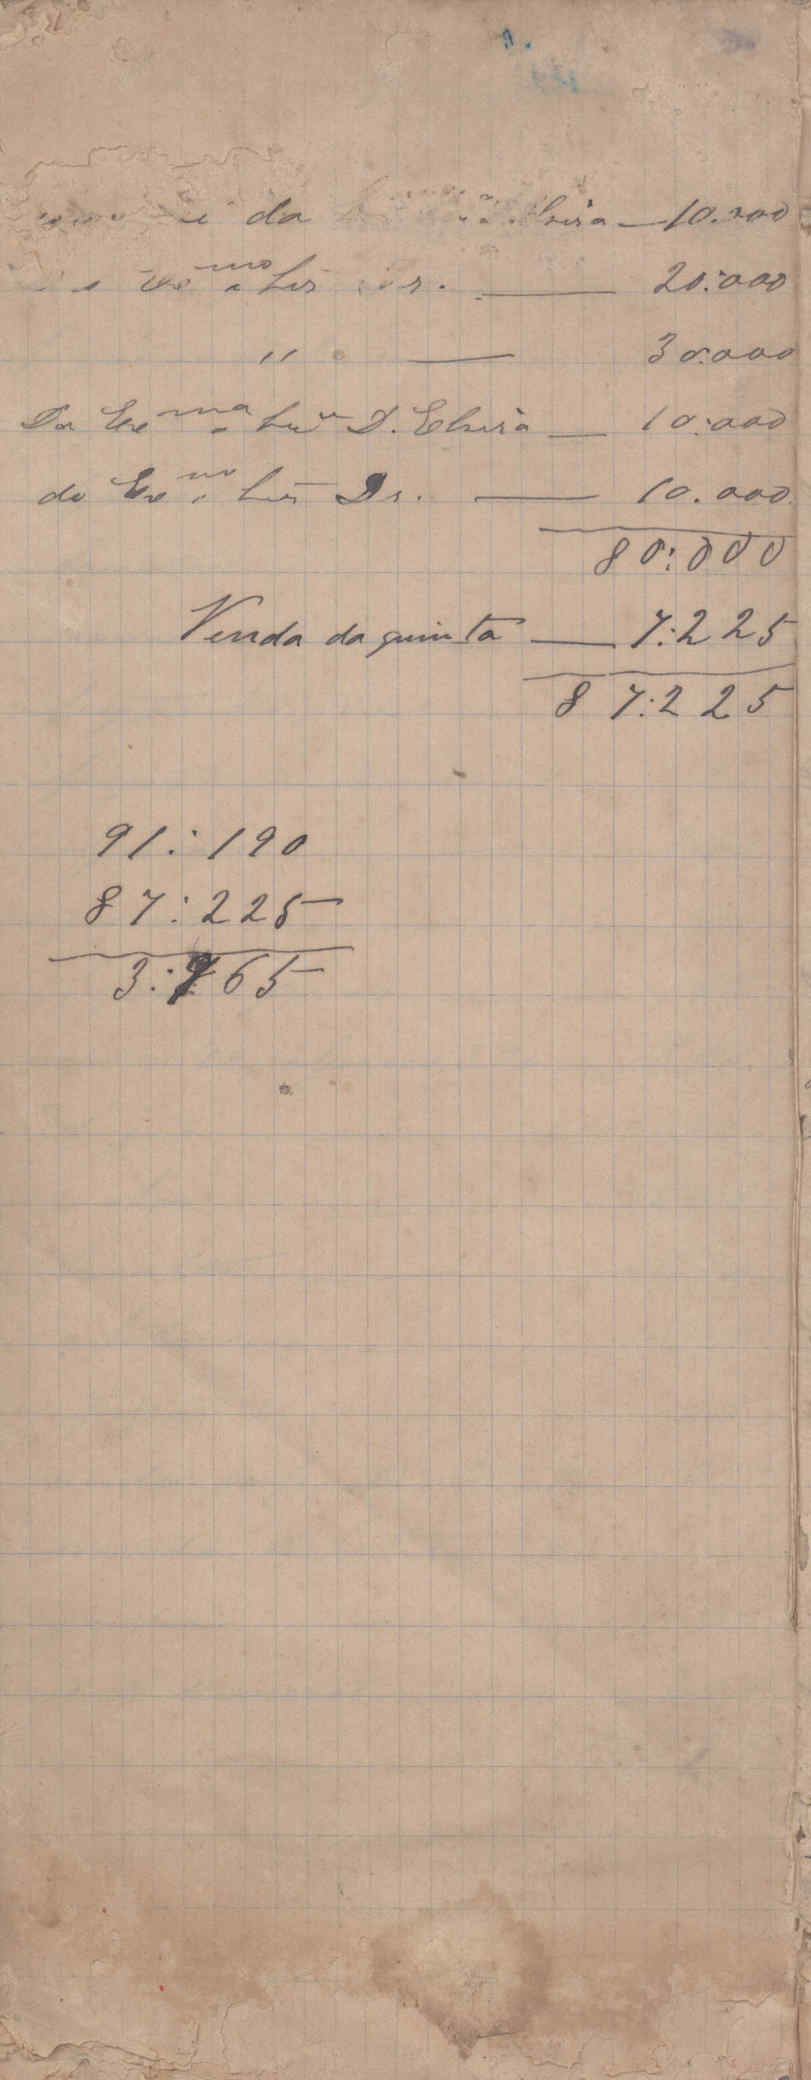 da — 10.000
mo — 20:000
" — 30:000
Da Exma Snra D. Elvira — 10:000
do Exmo Snr Dr. — 10.000
80:000
Venda da quinta — 7:225
87:225
91:190
87:225
3:965